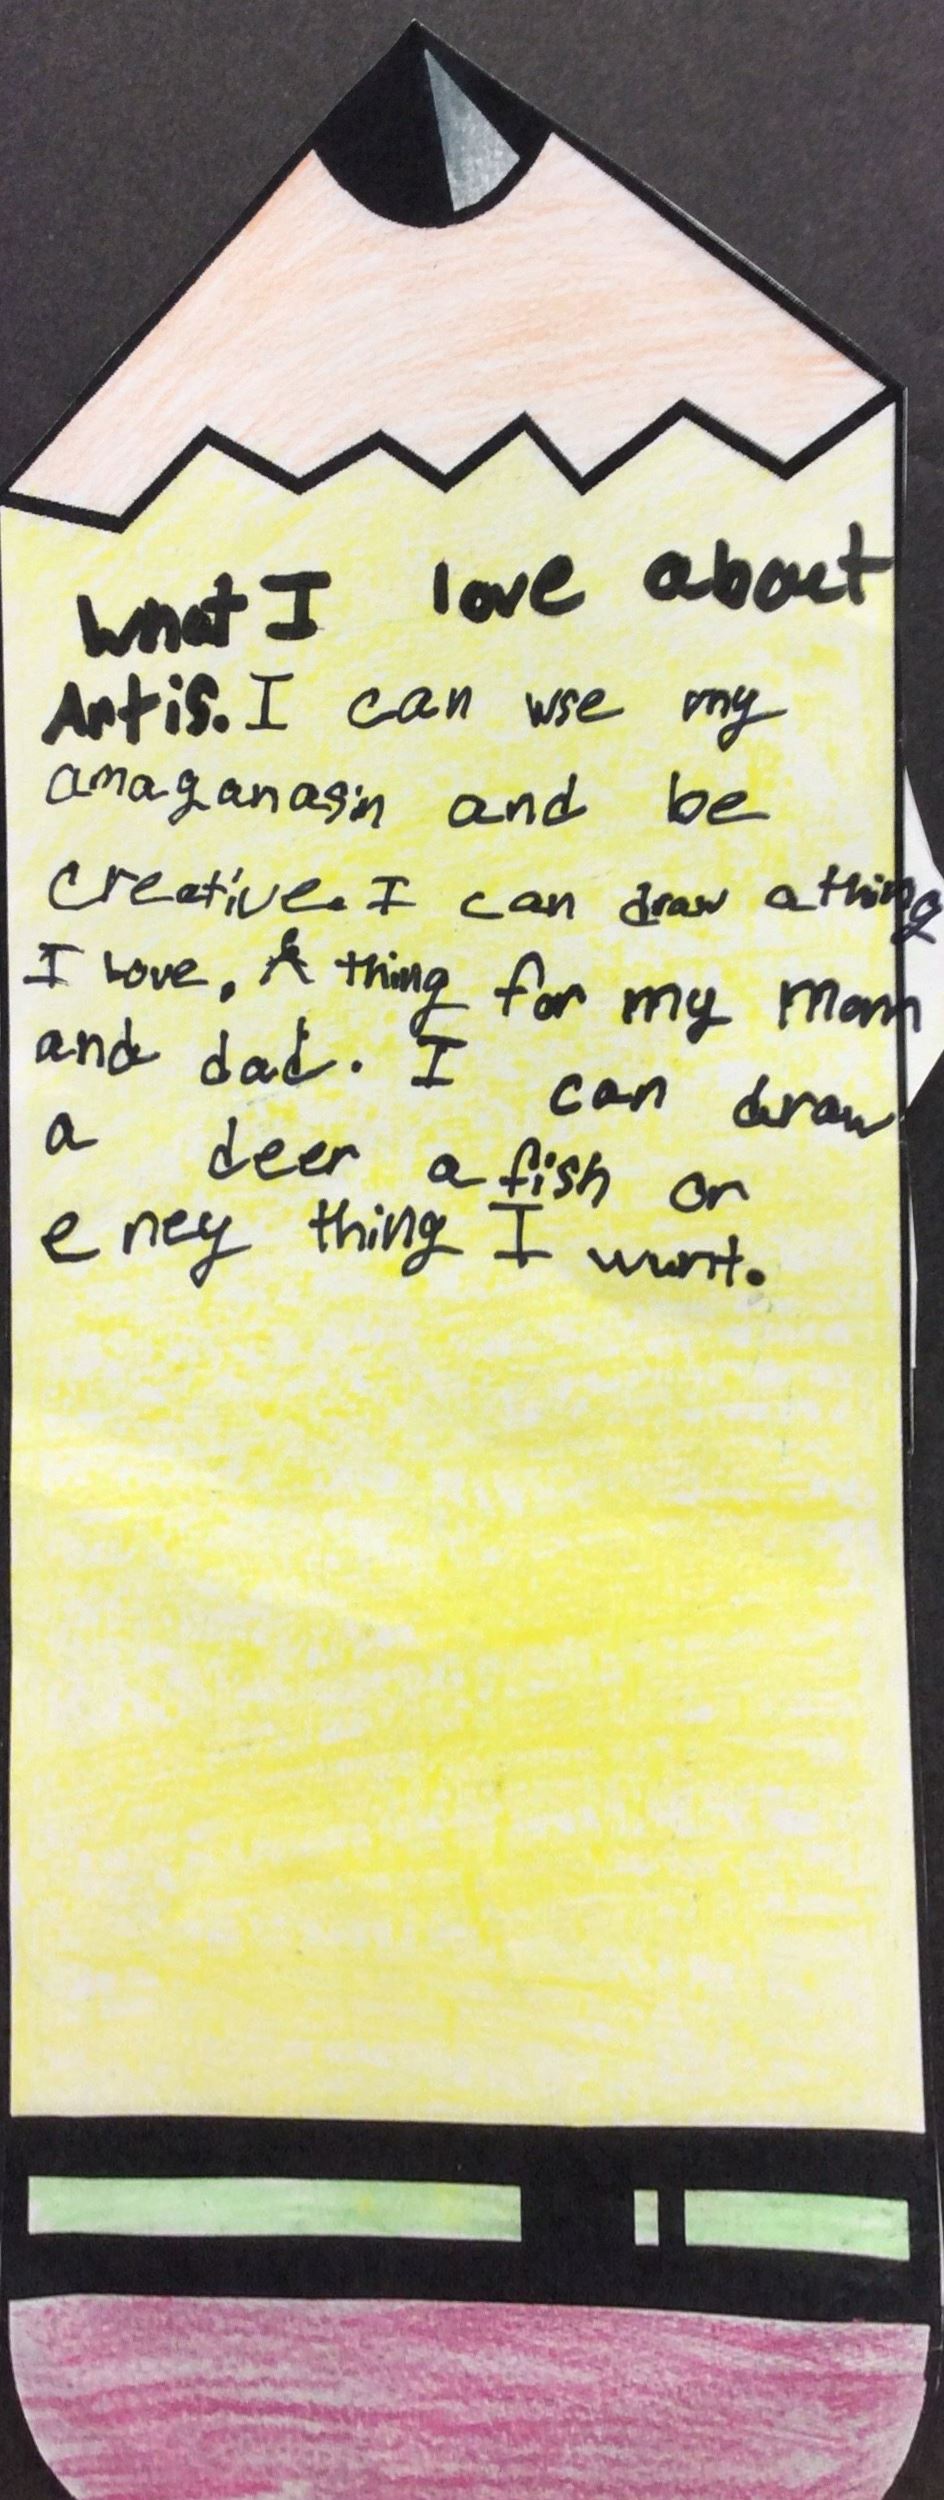 What I love about
Art is. I can use my
amaganasin and be
creative. I can draw a thing
I love, A thing for my mom
and dad. I can draw
a deer a fish or
e ney thing I wunt.